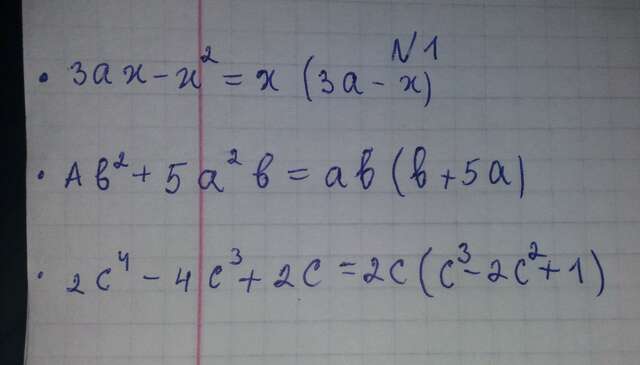 N1
• 3ax - x² = x (3a - x)
• Ab² + 5a²b = ab (b + 5a)
• 2c⁴ - 4c³ + 2c = 2c (c³ - 2c² + 1)